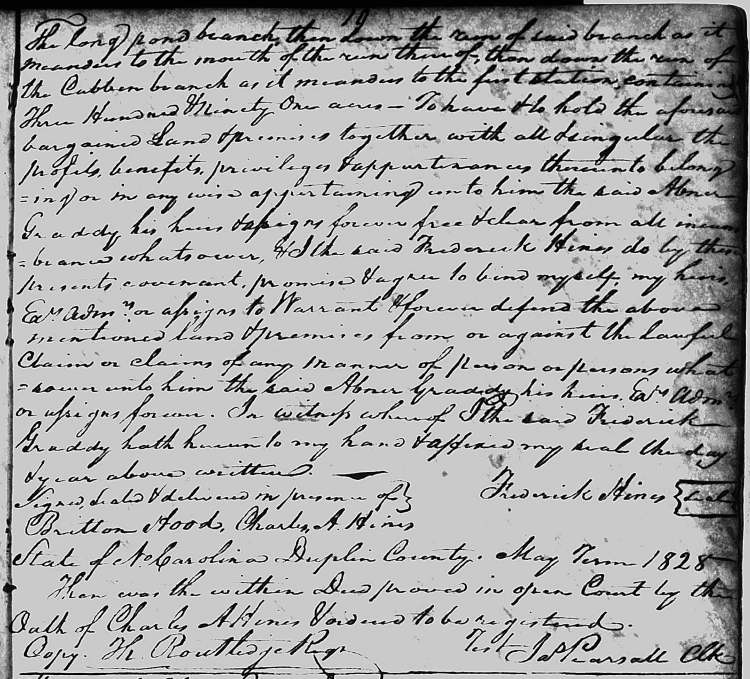 19
The long pond branch, then down the run of said branch as it
meanders to the mouth of the run thereof, then down the run of
the Cabben branch as it meanders to the first station, containing
Three Hundred & Ninety One acres – To have & to hold the aforesaid
bargained Land & premises together with all & singular the
profits, benefits, privileges & appurtenances thereunto belong
=ing or in any wise appertaining unto him the said Abner
Graddy his heirs & assigns forever free & clear from all incum
=brance whatsoever, & I the said Frederick Hines do by these
presents covenant, promise & agree to bind myself, my heirs,
Exrs Admrs or assigns to Warrant & forever defend the above
mentioned land & premises from or against the lawful
Claim or claims of any manner of person or persons what
=soever unto him the said Abner Graddy his heirs, Exrs Admrs
or assigns forever. In witness whereof I the said Frederick
Graddy hath hereunto my hand & affixed my seal the day
& year above written.
Signed, seald & delivered in presence of } Frederick Hines {seal}
Britton Hood, Charles A. Hines
State of N Carolina Duplin County. May Term 1828
Then was the within Deed proved in open Court by the
Oath of Charles A Hines & ordered to be registered.
Copy. Th. Routledge Regr Test Jas Pearsall Clk